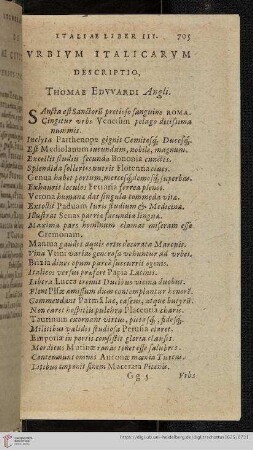 ITALIAE LIBER III. 705
VRBIVM ITALICARVM
DESCRIPTIO,
THOMAE EDVVARDI Angli.
SAncta est Sanctorũ pretioso sanguine ROMA.
Cingitur urbs Venetûm pelago ditissima
nummis.
Inclyta Parthenope gignit Comitesq́; Ducesq́;.
Est Mediolanum iucundum, nobile, magnum.
Excellit studiis fecunda Bononia cunctis.
Splendida solertes nutrit Florentia ciues.
Genua habet portum, mercesq́; domosq́; superbas.
Exhaurit loculos Ferraria ferrea plenos.
Verona humanæ dat singula commoda vitæ.
Extollit Paduam Iuris studium & Medicinæ.
Illustrat Senas patriæ facundia linguæ.
Maxima pars hominum clamat miseram esse
Cremonam.
Mantua gaudet aquis ortu decorata Maronis.
Vina Vtini varias generosa vehuntur ad urbes.
Brixia diues opum parcè succurrit egenis.
Italicos versus præfert Papia Latinis.
Libera Lucca tremit Ducibus vicina duobus.
Flent Pisæ amissum dum contemplantur honorem.
Commendant Parmã lac, caseus, atque butyrũ.
Non caret hospitiis pulchra Placentia charis.
Taurinum exornant virtus, pietasq́; fidesq́;.
Militibus validis studiosa Perusia claret.
Emporiis in portis consistit gloria clausis.
Mordicus Mutinæ ranas tenet esse salubres.
Contemnunt omnes Anconæ mœnia Turcas.
Litibus imponit finem Macerata Picenis.
G g 5 Vrbs
https://digi.ub.uni-heidelberg.de/diglit/schottus1625/0731